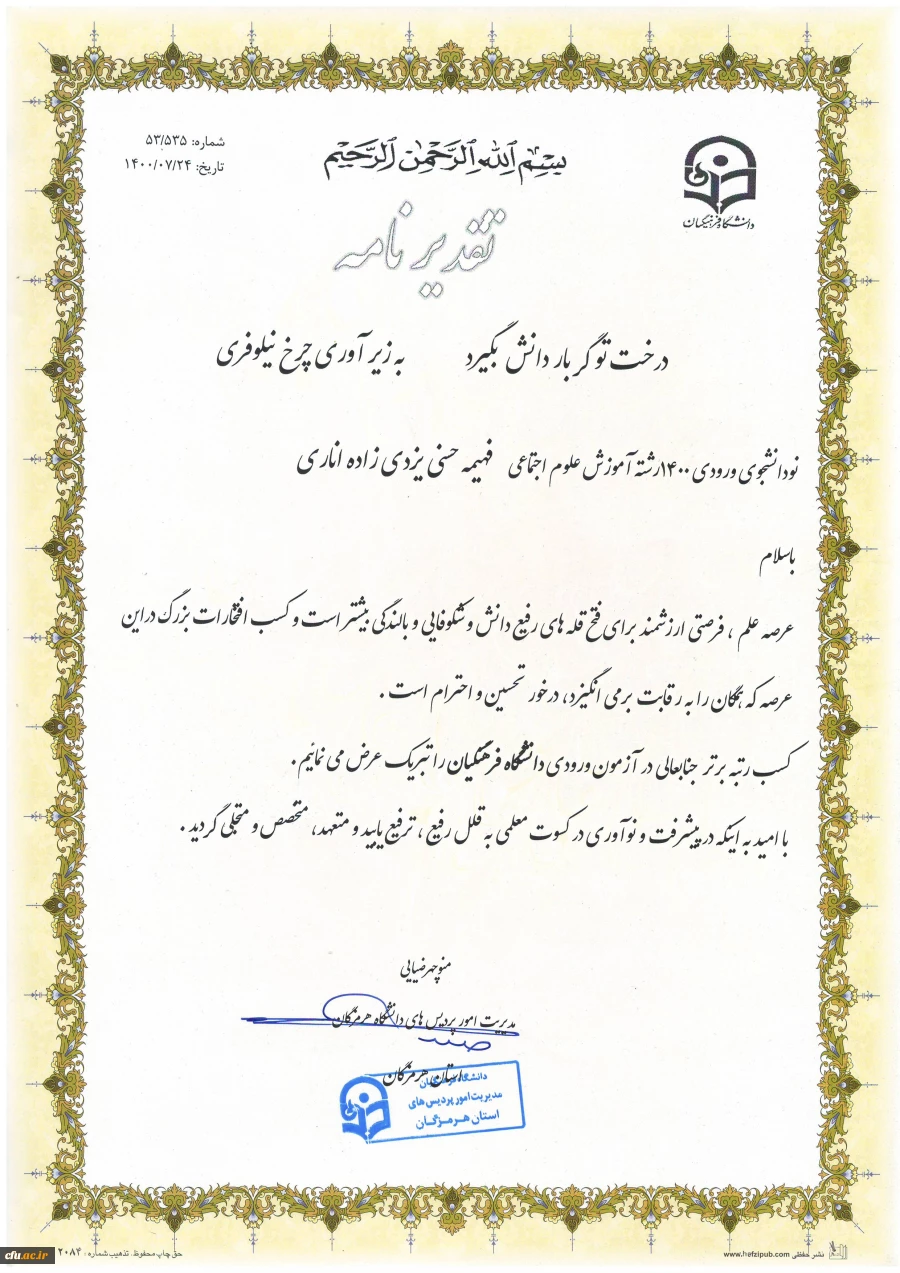 شماره: ۵۳/۵۳۵
تاریخ: ۱۴۰۰/۰۷/۲۴
بسم الله الرحمن الرحیم
دانشگاه فرهنگیان
تقدیر نامه
درخت تو گر بار دانش بگیرد به زیر آوری چرخ نیلوفری
نودانشجوی ورودی ۱۴۰۰رشته آموزش علوم اجتماعی فهیمه حسنی یزدی زاده اناری
باسلام
عرصه علم ، فرصتی ارزشمند برای فتح قله های رفیع دانش و شکوفایی و بالندگی بیشتر است و کسب افتخارات بزرگ دراین
عرصه که همگان را به رقابت برمی انگیزد، درخور تحسین و احترام است .
کسب رتبه برتر جنابعالی در آزمون ورودی دانشگاه فرهنگیان را تبریک عرض می نمائیم.
با امید به اینکه در پیشرفت و نوآوری در کسوت معلمی به قلل رفیع ، ترفیع یابید و متعهد، متخصص و متجلی گردید .
منوچهر ضیایی
مدیریت امور پردیس های دانشگاه هرمزگان
استان هرمزگان
دانشگاه فرهنگیان
مدیریت امور پردیس‌های
استان هرمزگان
نشر حفظی www.hefzipub.com
حق چاپ محفوظ. تذهیب شماره: ۲۰۸۴
cfu.ac.ir